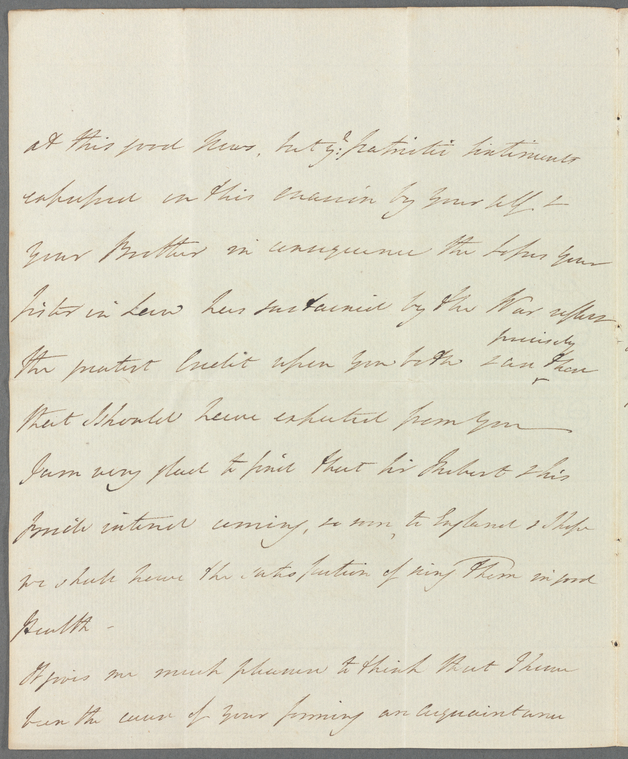 at this good News, but yr: patriotic sentiments
expressed on this occasion by yourself &
your Brother in consequence the losses your
Sister in Law has sustained by the War reflect
the greatest Credit upon you both & are precisely those
that I should have expected from you
I am very glad to find that Sir Gilbert & his
family intend coming, so soon, to England & I hope
we shall have the satisfaction of seeing Them in good
Health -
It gives me much pleasure to think that I have
been the cause of your forming an acquaintance